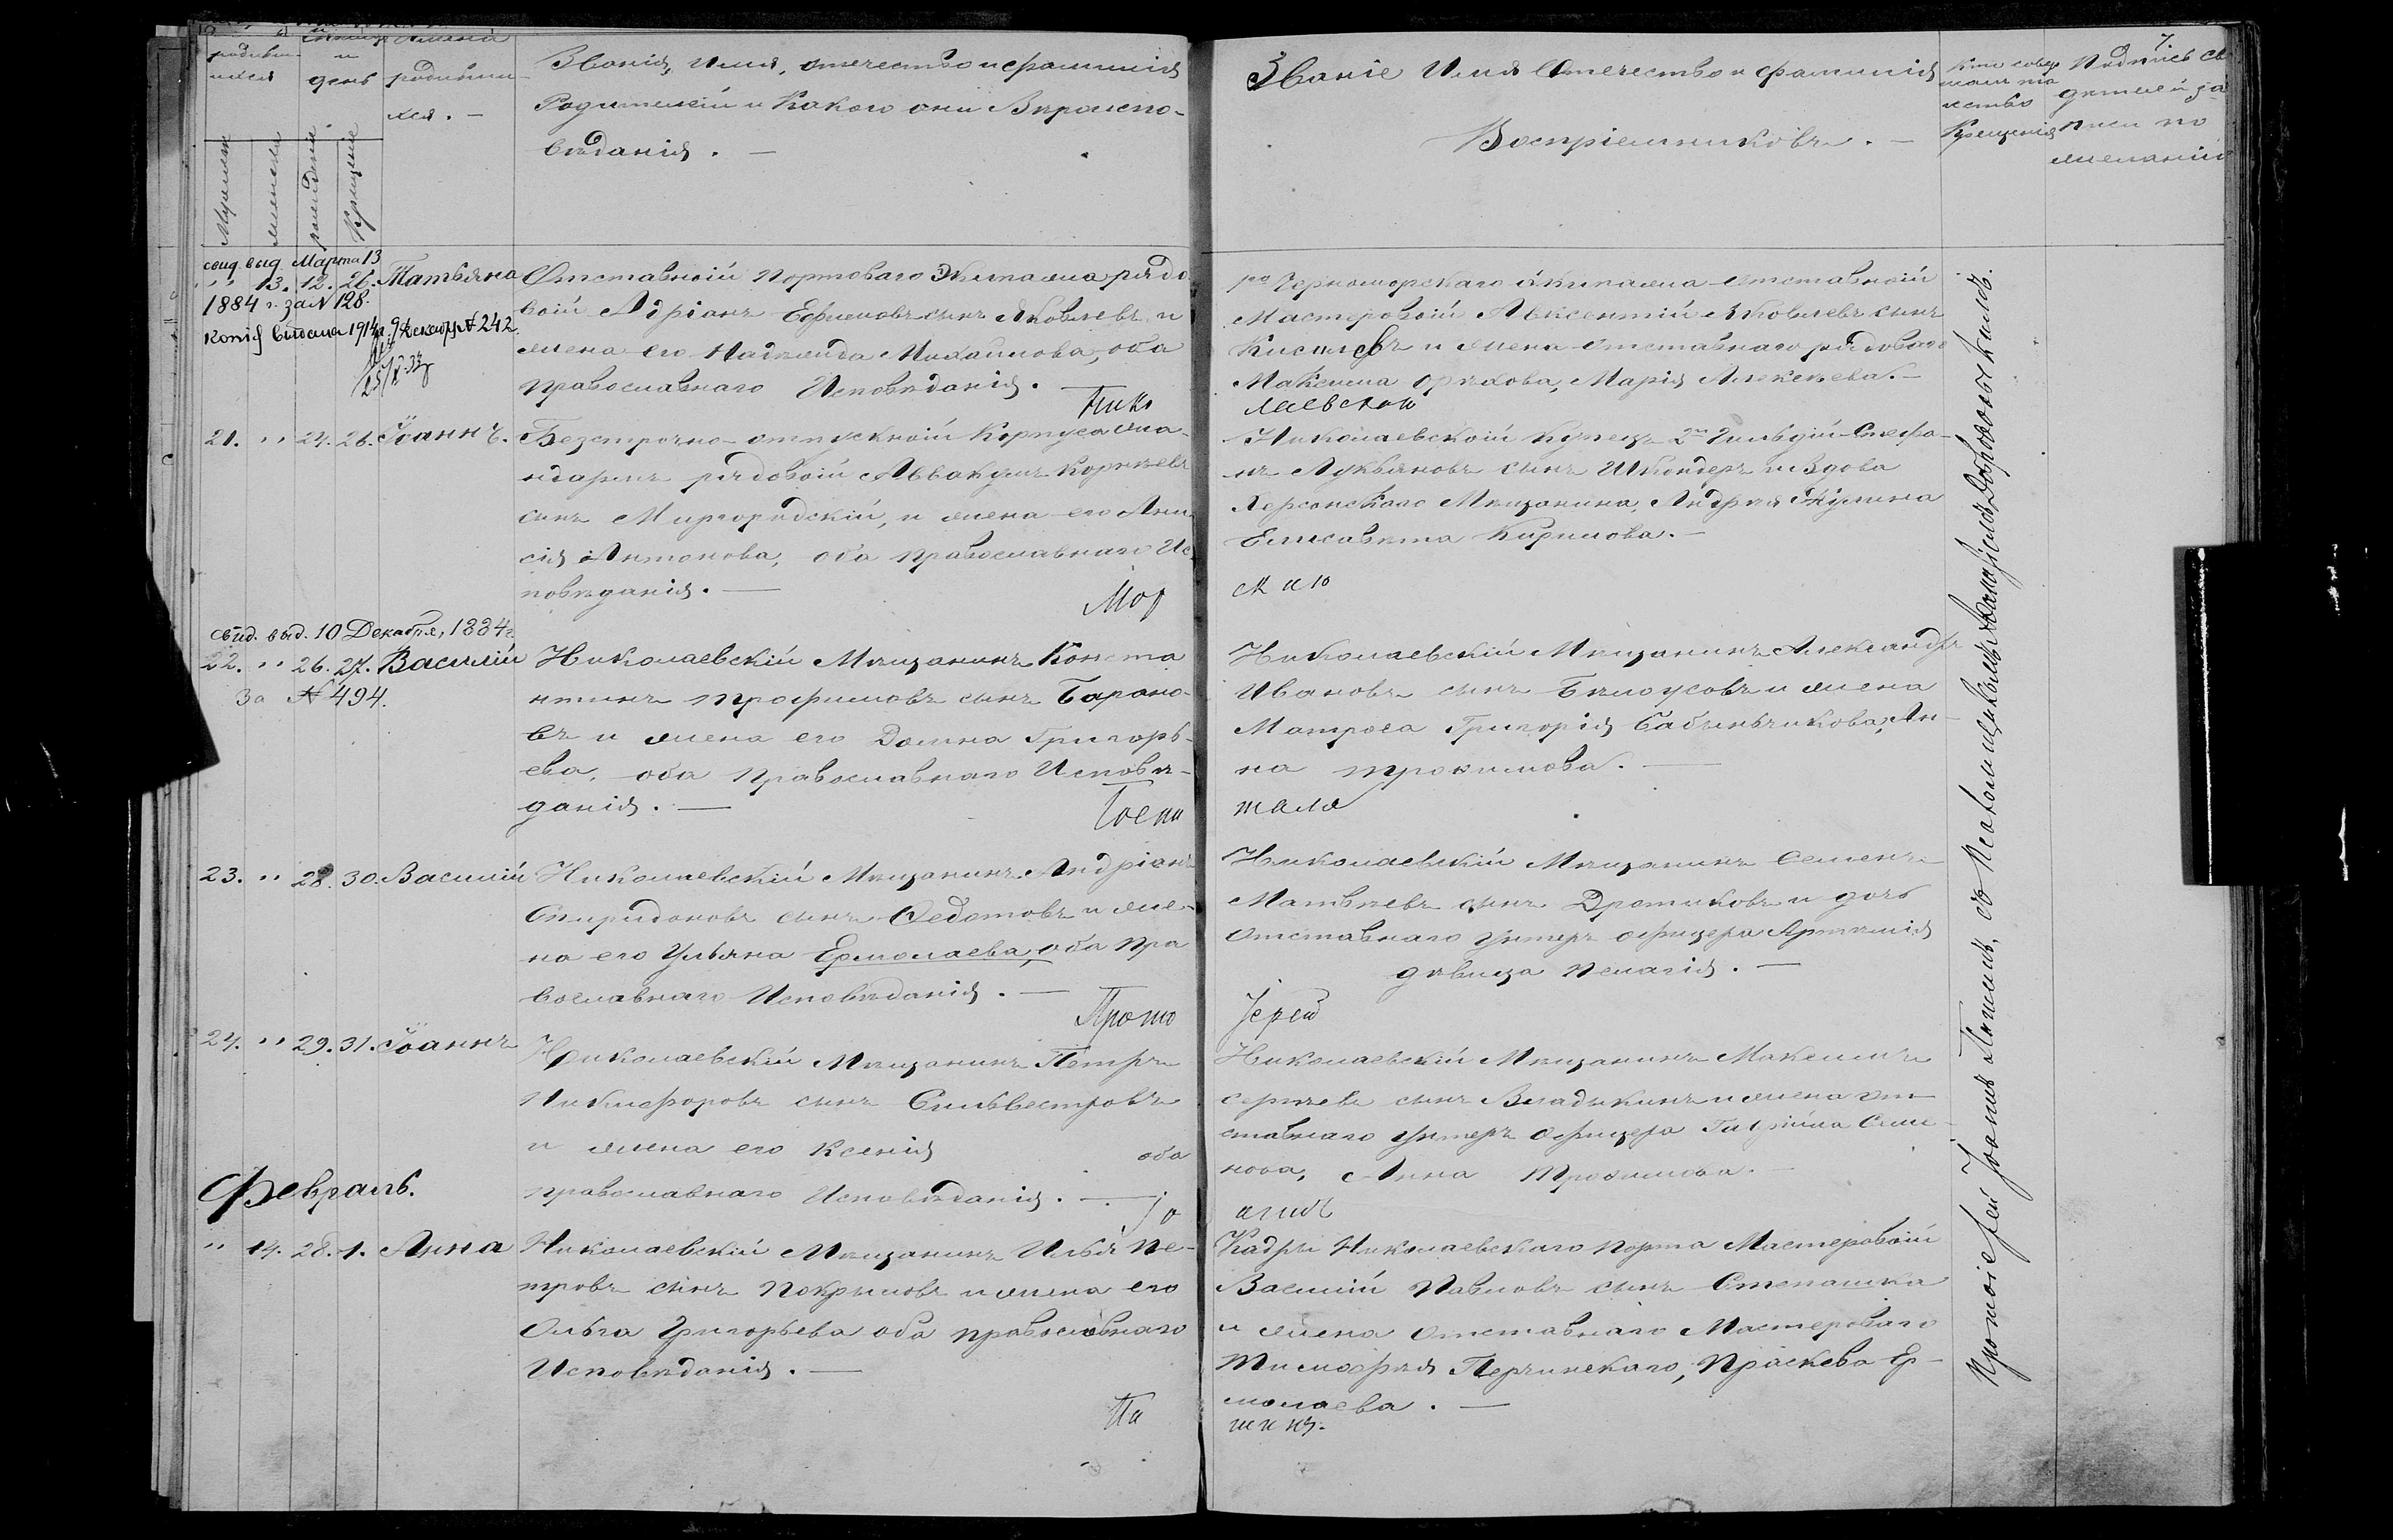 7.
родивш-
ихся
и
день
Имена
родивши-
хся. —
Мужеска
женска
рожденія
Крещенія
Званія, имя, отечество и фамилія
Родителей и Какого они Вѣроиспо-
вѣданія. —
Званіе Имя Отечество и фамилія
Воспріемниковъ. —
Кто совер
шалъ та
инство
Крещенія
Подпись св
дѣтелей за
писи по
желанію
свид. выд. Марта 13
" 13. 12. 26. Татьяна
1884 г. за № 128.
Копія выдана 1914 г. 9 Декабр. № 242.
Отставной Портоваго Экипажа рядо
вой Адріанъ Ефимовъ сынъ Яковлевъ, и
жена его Надежда Михайлова, оба
православнаго Исповѣданія. —
Нико
Черноморскаго экипажа отставной
Мастеровой Авксентій Яковлевъ сынъ
Киселевъ и жена отставнаго рядоваго
Максима Орѣхова, Марія Алексѣева. —
лаевской
21. " 24. 26. Іоаннъ.
Безсрочно-отпускной Корпуса жа-
ндармъ рядовой Аввакумъ Корнѣевъ
сынъ Миргородскій, и жена его Ани
сія Антонова, оба православнаго Ис
повѣданія. —
Мор
Николаевской Купецъ 2й Гильдіи Стефа-
нъ Лукьяновъ сынъ Шкондеръ и Вдова
Херсонскаго Мѣщанина, Андрея Жулина
Елисавета Кирилова. —
скаю
свид. выд. 10 Декабря, 1884 г.
22. " 26. 27. Василій
За № 494.
Николаевскій Мѣщанинъ Конста
нтинъ Трофимовъ сынъ Барано-
въ и жена его Домна Григорь-
ева, оба Православнаго Исповѣ-
данія. —
Госпи
Николаевскій Мѣщанинъ Александръ
Ивановъ сынъ Бѣлоусовъ и жена
Матроса Григорія Бабынчикова, Ан-
на Трофимова. —
таля
23. " 28. 30. Василій
Николаевскій Мѣщанинъ Андріанъ
Спиридоновъ сынъ Ѳедотовъ и же-
на его Ульяна Ермолаева, оба Пра
вославнаго Исповѣданія. —
Прото
Николаевскій Мѣщанинъ Семенъ
Матвѣевъ сынъ Дротиковъ и дочь
Отставнаго Унтеръ офицера Артемія
дѣвица Пелагія. —
Іерей
24. " 29. 31. Іоаннъ
Николаевскій Мѣщанинъ Петръ
Никифоровъ сынъ Сильвестровъ
и жена его Ксенія оба
православнаго Исповѣданія. —
Іо
Николаевскій Мѣщанинъ Максимъ
Сергѣевъ сынъ Владыкинъ и жена от-
ставнаго Унтеръ Офицера Гавріила Сми
нова, Анна Трофимова. —
аннъ
Февраль.
" 14. 28. 1. Анна
Николаевскій Мѣщанинъ Илья Пе-
тровъ сынъ Покрыловъ и жена его
Ольга Григорьева оба православнаго
Исповѣданія. —
Па
Кадры Николаевскаго порта Мастеровой
Василій Павловъ сынъ Степашка
и жена Отставнаго Мастероваго
Тимофея Перчинскаго, Праскева Ер-
молаева. —
шинъ.
Протоіерей Іоаннъ Пашинъ, съ Псаломщикомъ